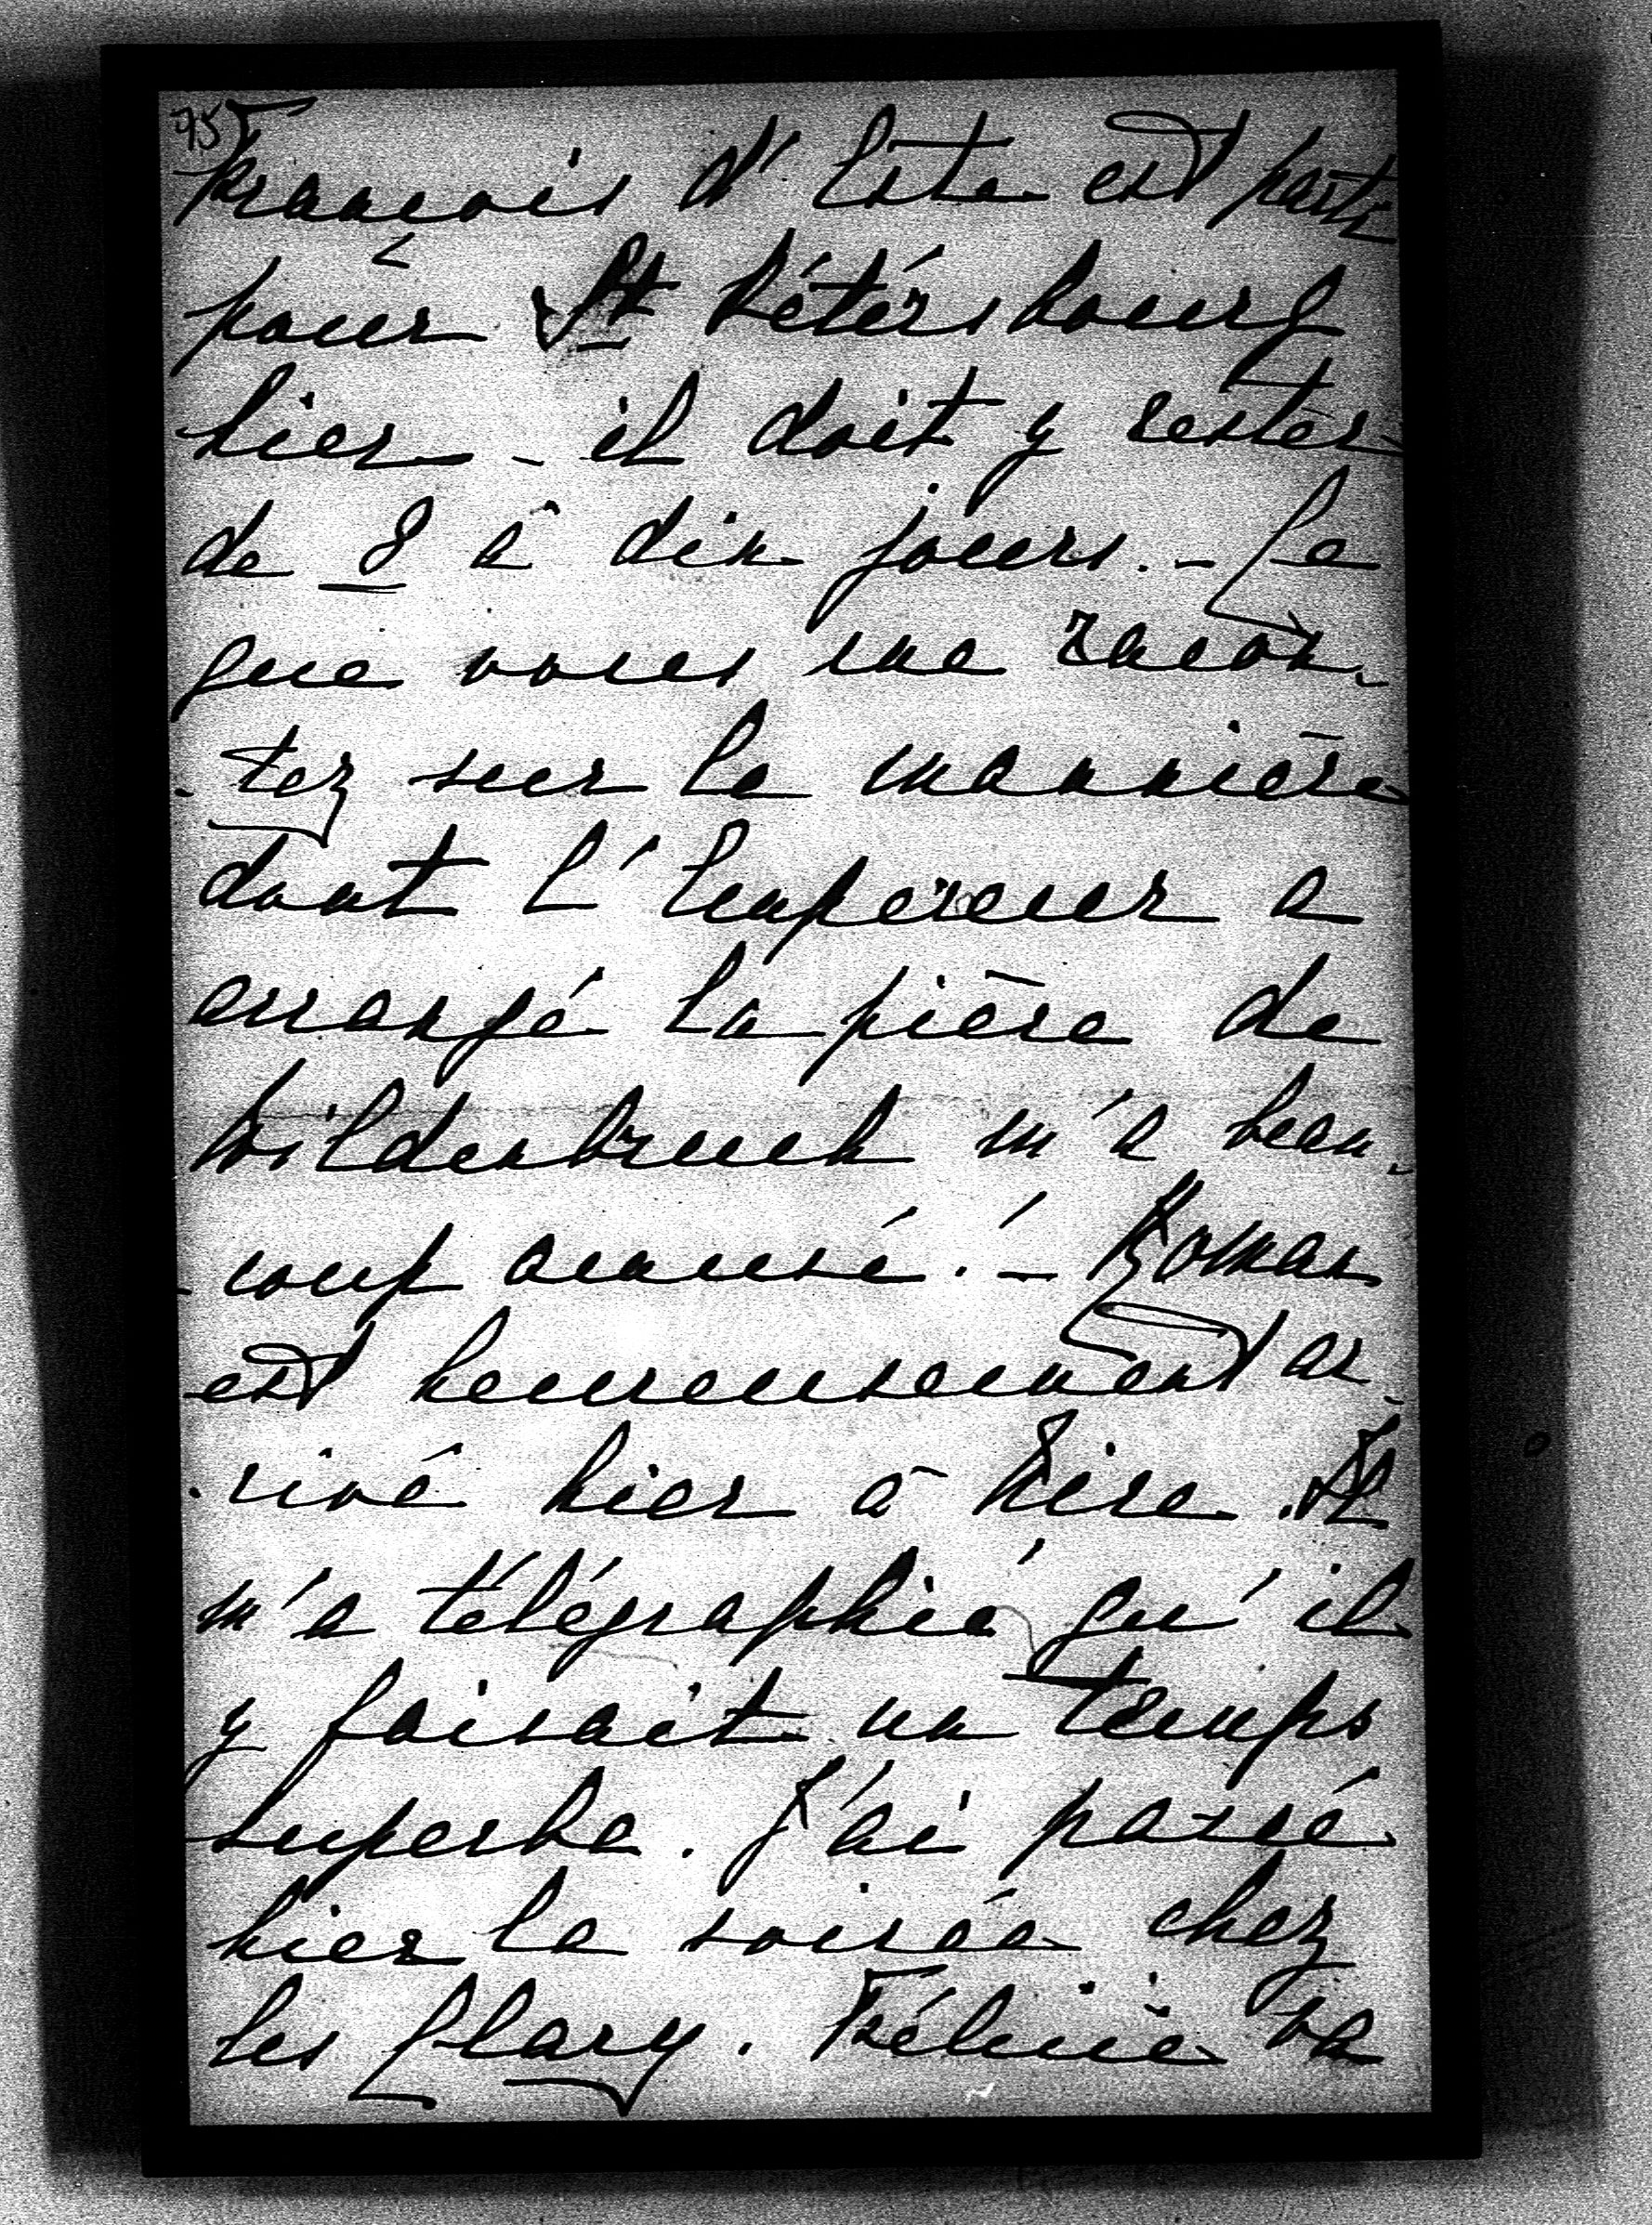 95
François d'Este est parti
pour St Pétérsbourg
hier - il doit y rester
de 8 à dix jours. - Ce
que vous me racon-
-tez sur la mannière
dont l'Empereur a
arrangé la pièce de
Wildenbruch m'a beau-
-coup amusé! - Roman
est heureusement ar-
-rivé hier à Nice. Il
m'a télégraphié qu'il
y faisait un temps
superbe. J'ai passé
hier la soirée chez
les Clary. Félicie va